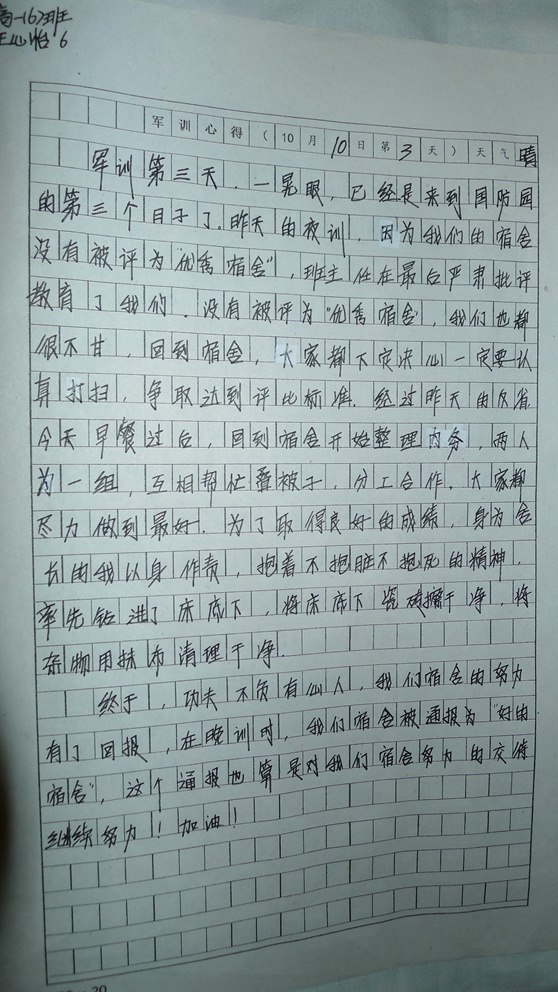 高一(6)班
王心怡 6
军训心得(10月10日第3天)天气晴
军训第三天,一晃眼,已经是来到国防园
的第三个日子了。昨天的夜训,因为我们的宿舍
没有被评为“优秀宿舍”,班主任在最后严肃批评
教育了我们。没有被评为“优秀宿舍”,我们也都
很不甘,回到宿舍,大家都下定决心一定要认
真打扫,争取达到评比标准。经过昨天的反省
今天早餐过后,回到宿舍开始整理内务,两人
为一组,互相帮忙叠被子,分工合作。大家都
尽力做到最好。为了取得良好的成绩,身为舍
长的我以身作责,抱着不抱脏不抱死的精神。
率先钻进了床底下,将床底下瓷砖擦干净,将
杂物用抹布清理干净。
终于,功夫不负有心人,我们宿舍的努力
有了回报,在晚训时,我们宿舍被通报为“好的
宿舍”,这个通报也算是对我们宿舍努力的交待
继续努力!加油!
20